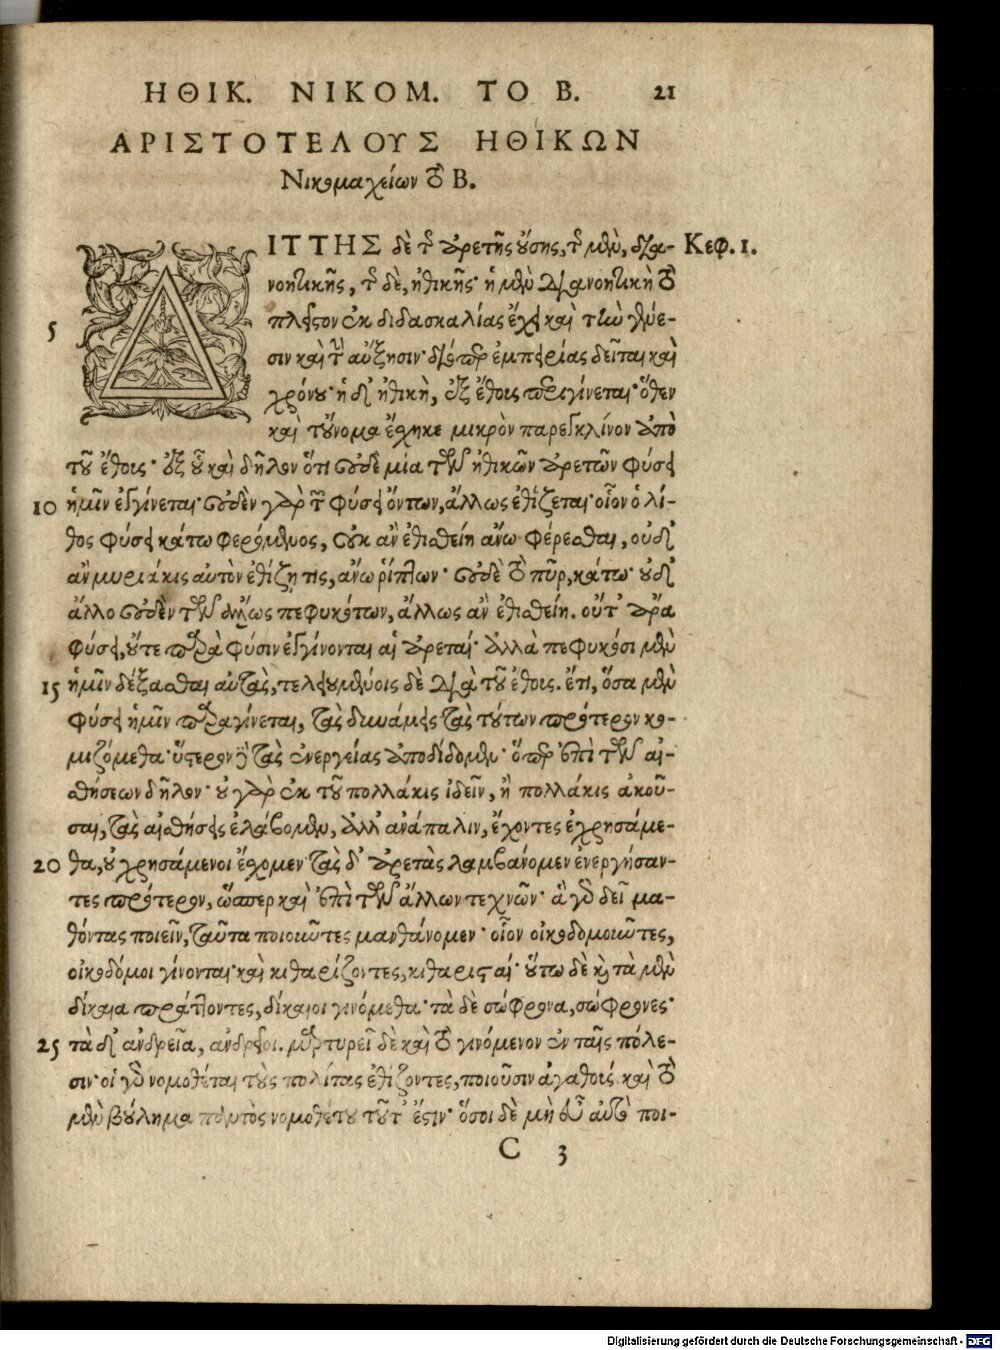 ΗΘΙΚ. ΝΙΚΟΜ. ΤΟ Β. 21
ΑΡΙΣΤΟΤΕΛΟΥΣ ΗΘΙΚΩΝ
Νικομαχείων τὸ Β.
ΔΙΤΤΗΣ δὲ τῆς ἀρετῆς οὔσης, τῆς μὲν, δια- Κεφ. 1.
νοητικῆς, τῆς δὲ, ἠθικῆς· ἡ μὲν διανοητικὴ τὸ
5 πλεῖστον ἐκ διδασκαλίας ἔχει καὶ τὴν γένε-
σιν καὶ τὴν αὔξησιν· διόπερ ἐμπειρίας δεῖται καὶ
χρόνου· ἡ δ' ἠθικὴ, ἐξ ἔθους περιγίνεται· ὅθεν
καὶ τοὔνομα ἔσχηκε μικρὸν παρεγκλίνον ἀπὸ
τοῦ ἔθους· ἐξ οὗ καὶ δῆλον ὅτι οὐδὲ μία τῶν ἠθικῶν ἀρετῶν φύσει
10 ἡμῖν ἐγγίνεται· οὐδὲν γὰρ τῶν φύσει ὄντων, ἄλλως ἐθίζεται· οἷον ὁ λί-
θος φύσει κάτω φερόμενος, οὐκ ἂν ἐθισθείη ἄνω φέρεσθαι, οὐδ'
ἂν μυριάκις αὐτὸν ἐθίζῃ τις, ἄνω ῥίπτων· οὐδὲ τὸ πῦρ, κάτω· οὐδ'
ἄλλο οὐδὲν τῶν ἄλλως πεφυκότων, ἄλλως ἂν ἐθισθείη. οὔτ' ἄρα
φύσει, οὔτε παρὰ φύσιν ἐγγίνονται αἱ ἀρεταί· ἀλλὰ πεφυκόσι μὲν
15 ἡμῖν δέξασθαι αὐτὰς, τελειουμένοις δὲ διὰ τοῦ ἔθους. ἔτι, ὅσα μὲν
φύσει ἡμῖν παραγίνεται, τὰς δυνάμεις τὰς τούτων πρότερον κο-
μιζόμεθα· ὕστερον δὲ τὰς ἐνεργείας ἀποδίδομεν· ὅπερ ἐπὶ τῶν αἰ-
σθήσεων δῆλον· οὐ γὰρ ἐκ τοῦ πολλάκις ἰδεῖν, ἢ πολλάκις ἀκοῦ-
σαι, τὰς αἰσθήσεις ἐλάβομεν, ἀλλ' ἀνάπαλιν, ἔχοντες ἐχρησάμε-
20 θα, οὐ χρησάμενοι ἔχομεν· τὰς δ' ἀρετὰς λαμβάνομεν ἐνεργήσαν-
τες πρότερον, ὥσπερ καὶ ἐπὶ τῶν ἄλλων τεχνῶν· ἃ γὰρ δεῖ μα-
θόντας ποιεῖν, ταῦτα ποιοῦντες μανθάνομεν· οἷον οἰκοδομοῦντες,
οἰκοδόμοι γίνονται· καὶ κιθαρίζοντες, κιθαρισταί· οὕτω δὲ καὶ τὰ μὲν
δίκαια πράττοντες, δίκαιοι γινόμεθα· τὰ δὲ σώφρονα, σώφρονες·
25 τὰ δ' ἀνδρεῖα, ἀνδρεῖοι. μαρτυρεῖ δὲ καὶ τὸ γινόμενον ἐν ταῖς πόλε-
σιν· οἱ γὰρ νομοθέται τοὺς πολίτας ἐθίζοντες, ποιοῦσιν ἀγαθοὺς· καὶ τὸ
μὲν βούλημα παντὸς νομοθέτου τοῦτ' ἔστιν· ὅσοι δὲ μὴ εὖ αὐτὸ ποι-
C 3
Digitalisierung gefördert durch die Deutsche Forschungsgemeinschaft - DFG